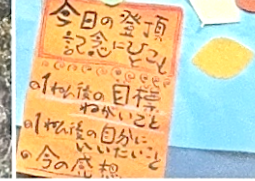 今日の登頂
記念にひとこと
○1ねん後の目標
ねがいごと
○1ねん後の自分に
いいたいこと
○今の感想